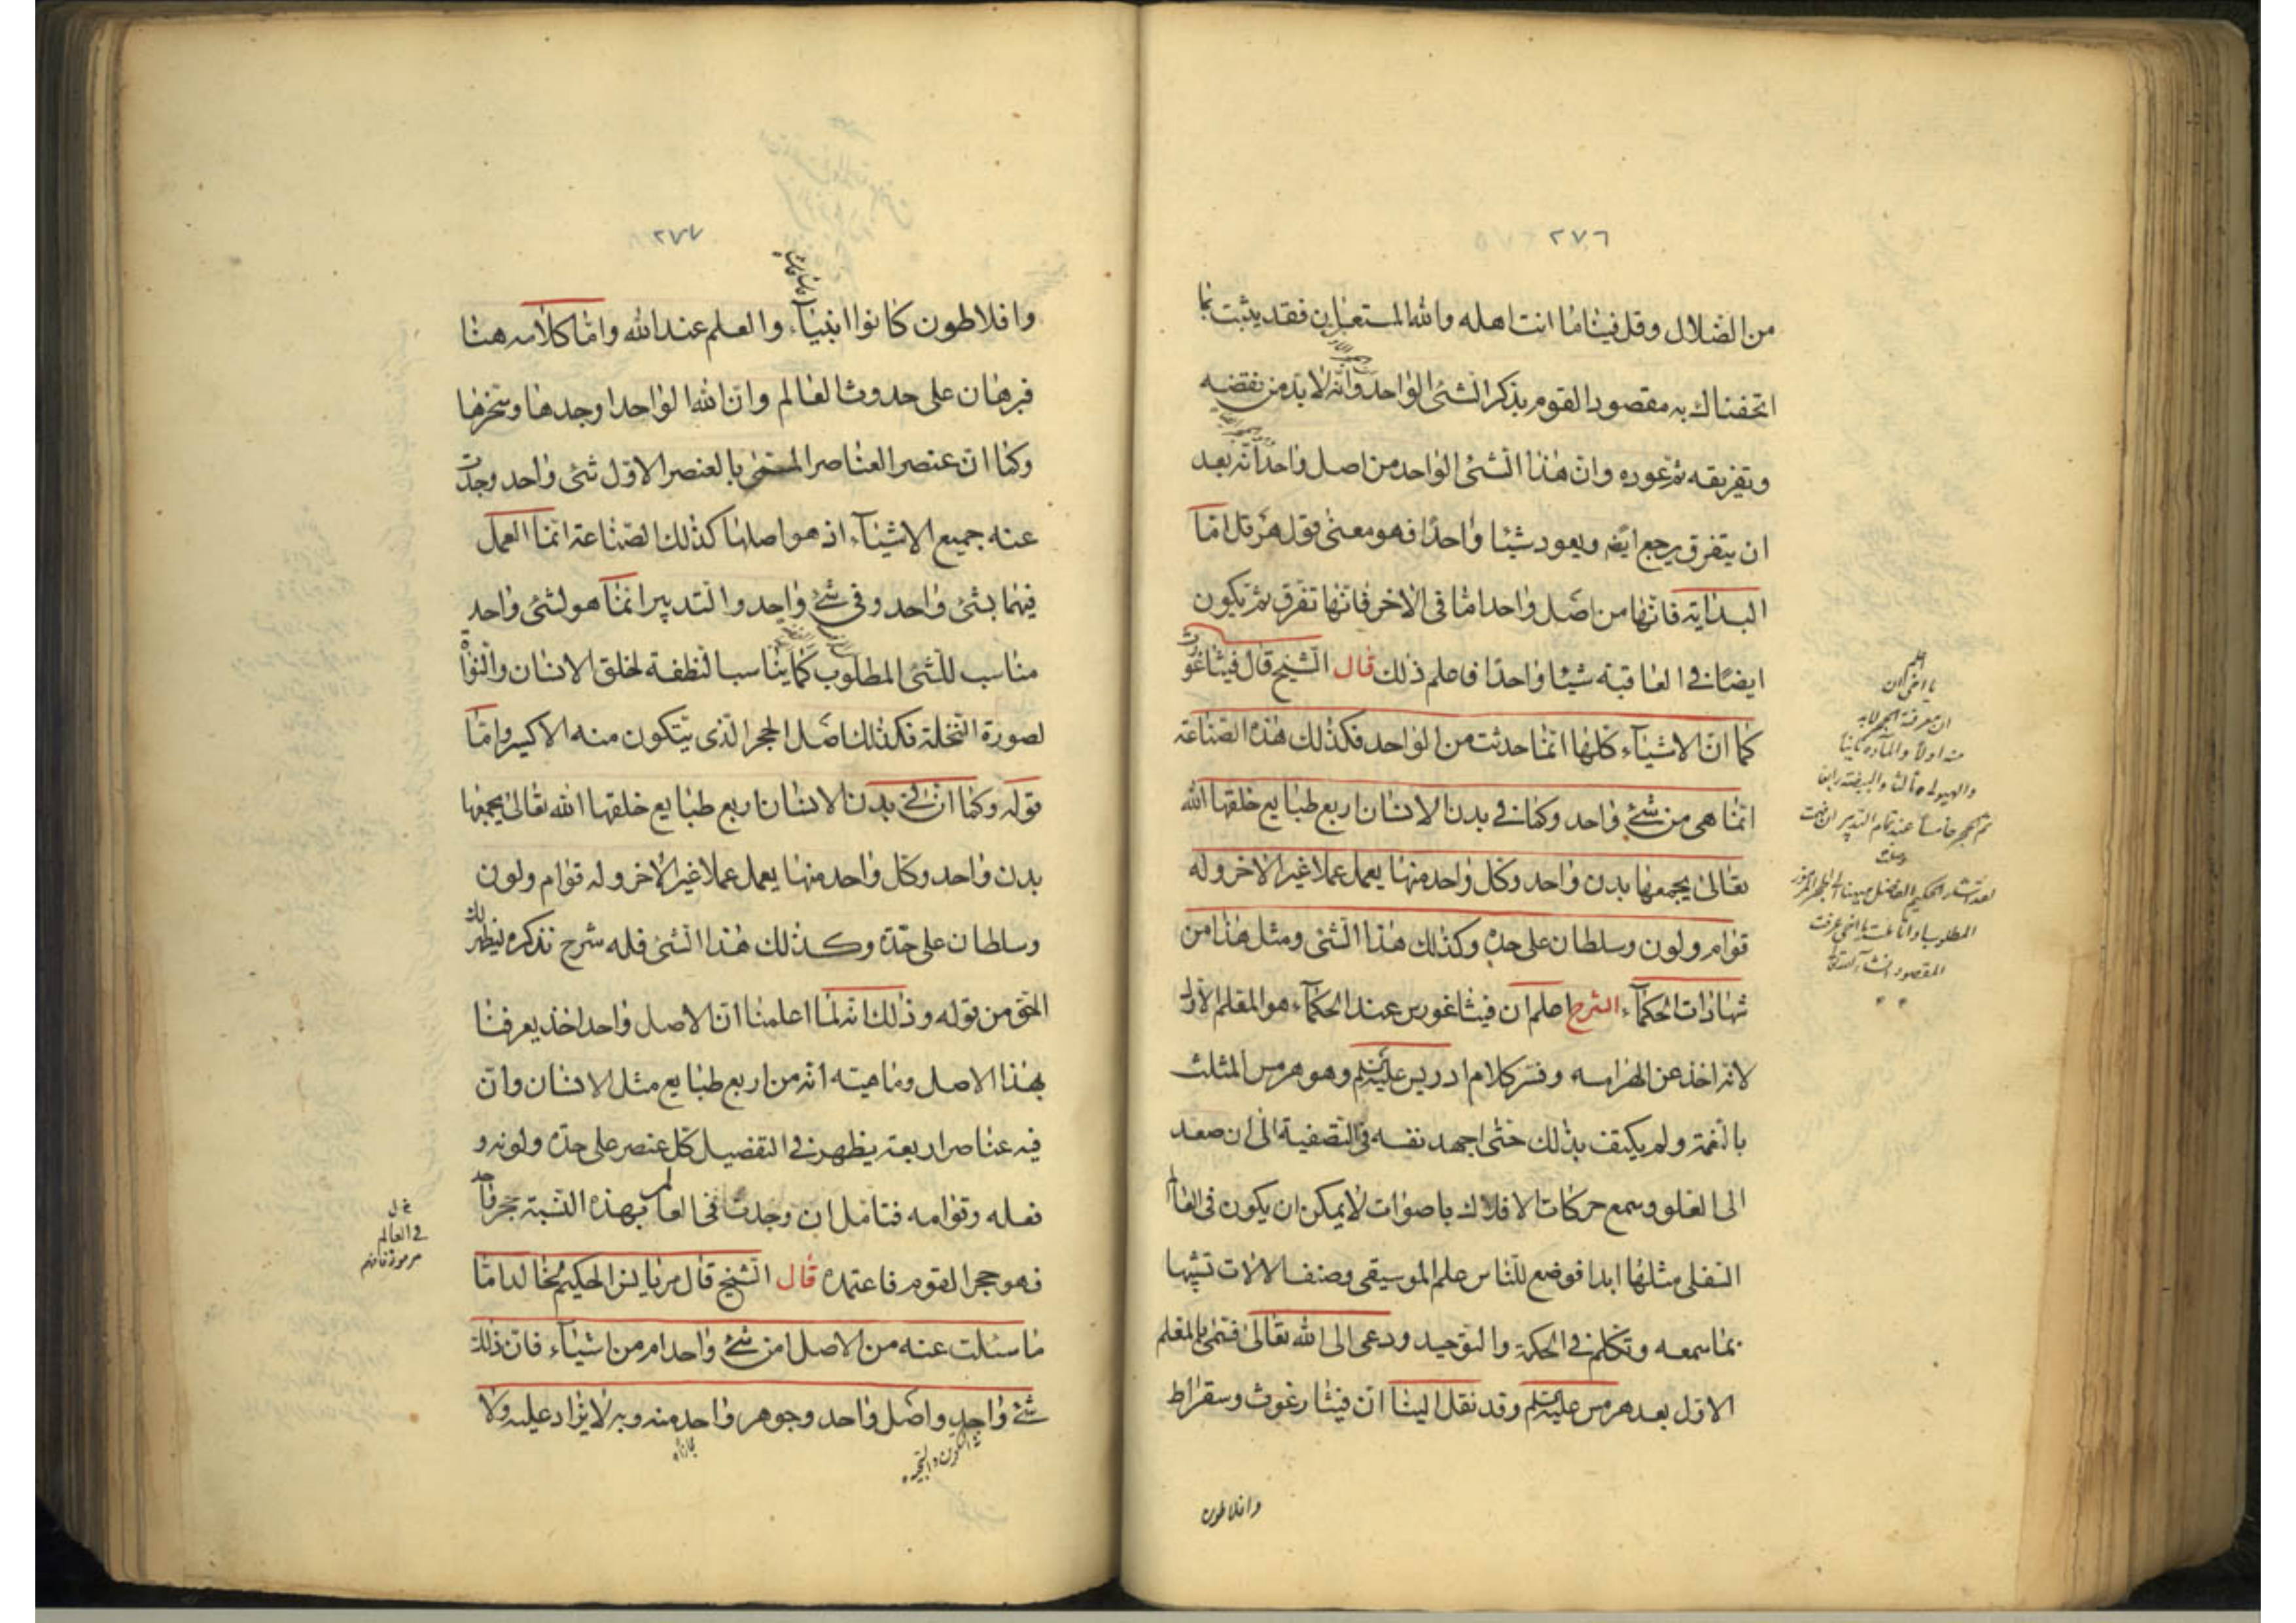 ٢٧٦
من الضلال وقل فيثاما انت اهله والله المستعان فقد يثبت بما
اتحفناك به مقصود القوم بذكر الشئ الواحد وانه لا بد من نقضه
وتفريقه ثم عوده وان هذا الشئ الواحد من اصل واحد انه بعد
ان يتفرق يرجع ايضه ويعود شيئا واحدا فهو معنى قول هرقل امّا
البداية فانها من اصل واحد امّا فى الاخر فانها تفرق ثم تكون
ايضا فى العاقبة شيئا واحدا فاعلم ذلك قال الشيخ قال فيثاغورث
كما انّ الاشياء كلها انما حدثت من الواحد فكذلك هذه الصناعة
انما هى من شئ واحد وكما فى بدن الانسان اربع طبايع خلقها الله
تعالى يجمعها بدن واحد وكل واحد منها يعمل عملا غير الاخر وله
قوام ولون وسلطان على حدة وكذلك هذا الشئ ومثل هذا من
شهادات الحكماء الشرح اعلم ان فيثاغورس عند الحكماء هو المعلم الاول
لانه اخذ عن الهرامسه وفسّر كلام ادريس عليه السلم وهو هرمس المثلث
بالنعمة ولم يكتف بذلك حتى اجهد نفسه فى التصفية الى ان صعد
الى العلو وسمع حركات الافلاك باصوات لا يمكن ان يكون فى العالم
السفلى مثلها ابدا فوضع للناس علم الموسيقى وصنف الالات تشبّها
بما سمعه وتكلم فى الحكمة والتوحيد ودعى الى الله تعالى فسمّى بالمعلم
الاول بعد هرمس عليه السلم وقد نقل الينا انّ فيثارغوث وسقراط
وافلاطون
اعلم
يا اخى ان
ان معرفة الحجر لابد
منه اولا والمآدة ثانيا
والهيولى ثالثا والبيضة رابعا
ثم الحجر خامسا عند تمام التدبير ان فهمت
لقد اشار الحكيم الفاضل
المطلوب
المقصود انشاء الله تعالى
٢٧٧
وافلاطون كانوا انبياء والعلم عند الله وامّا كلامه هنا
فبرهان على حدوث العالم وانّ الله الواحد اوجدها وسخرها
وكما انّ عنصر العناصر المسمّى بالعنصر الاول شئ واحد وجدت
عنه جميع الاشياء اذ هو اصلها كذلك الصناعة انما العمل
فيها بشئ واحد وفى شئ واحد والتدبير انما هو لشئ واحد
مناسب للشئ المطلوب كما يناسب النطفة لخلق الانسان والنواة
لصورة النخلة فكذلك اصل الحجر الذى يتكون منه الاكسير وامّا
قوله وكما انّ فى بدن الانسان اربع طبايع خلقها الله تعالى يجمعها
بدن واحد وكل واحد منها يعمل عملا غير الاخر وله قوام ولون
وسلطان على حدّة وكذلك هذا الشئ فله شرح نذكره ليظهر لك
الحق من قوله وذلك انه لما اعلمنا انّ الاصل واحد اخذ يعرفنا
بهذا الاصل وماهيته انه من اربع طبايع مثل الانسان وانّ
فيه عناصر اربعة يظهر فى التفصيل كل عنصر على حدّة ولونه و
فعله وقوامه فتامّل ان وجدت فى العالم بهذه النسبة حجر واحد
فهو حجر القوم فاعتمده قال الشيخ قال مريانس الحكيم لخالد امّا
ما سئلت عنه من الاصل امن شئ واحد ام من اشياء فانّ ذلك
شئ واحد واصل واحد وجوهر واحد منه وبه لا يزاد عليه ولا
فى العالم